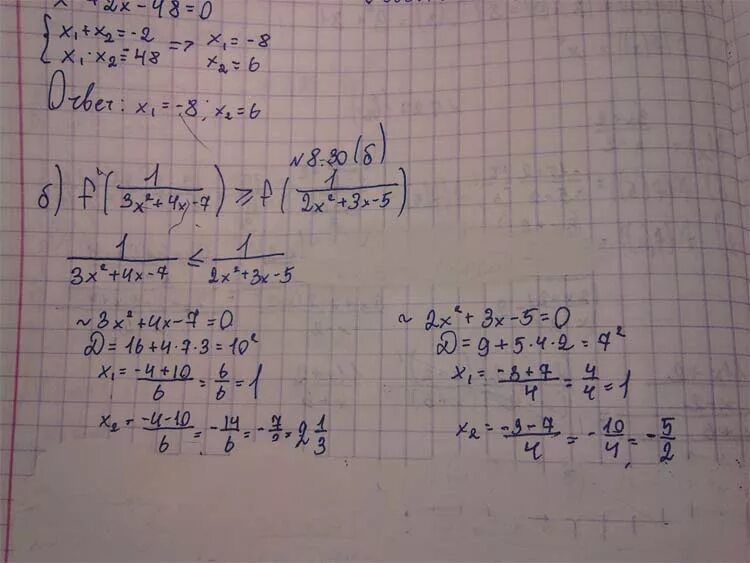 x² + 2x - 48 = 0
{ x₁ + x₂ = -2 => x₁ = -8
x₁ · x₂ = 48 x₂ = 6
Ответ: x₁ = -8; x₂ = 6
№8.30 (б)
б) f(1/(3x² + 4x - 7)) ≥ f(1/(2x² + 3x - 5))
1/(3x² + 4x - 7) ≤ 1/(2x² + 3x - 5)
~ 3x² + 4x - 7 = 0
D = 16 + 4·7·3 = 10²
x₁ = (-4 + 10)/6 = 6/6 = 1
x₂ = (-4 - 10)/6 = -14/6 = -7/3 = 2 1/3
~ 2x² + 3x - 5 = 0
D = 9 + 5·4·2 = 7²
x₁ = (-3 + 7)/4 = 4/4 = 1
x₂ = (-3 - 7)/4 = -10/4 = -5/2